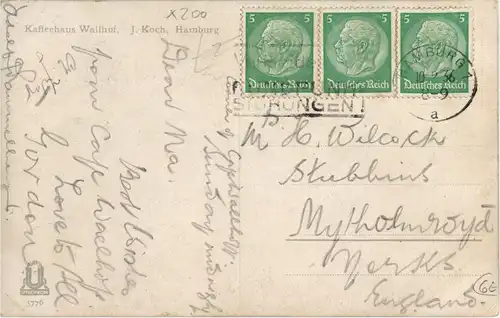 Kaffeehaus Wallhof. J. Koch, Hamburg
x200
5 5 5
Deutsches Reich Deutsches Reich Deutsches Reich
HAMBURG 1
a
STÖRUNGEN!
Sunday midnight
Dear Ma.
Best Wishes
from Cafe Wallhof
Love to All
Gordon
M H. Wilcock
Stubbins
Mytholmroyd
Yorks
England.
6E
1776